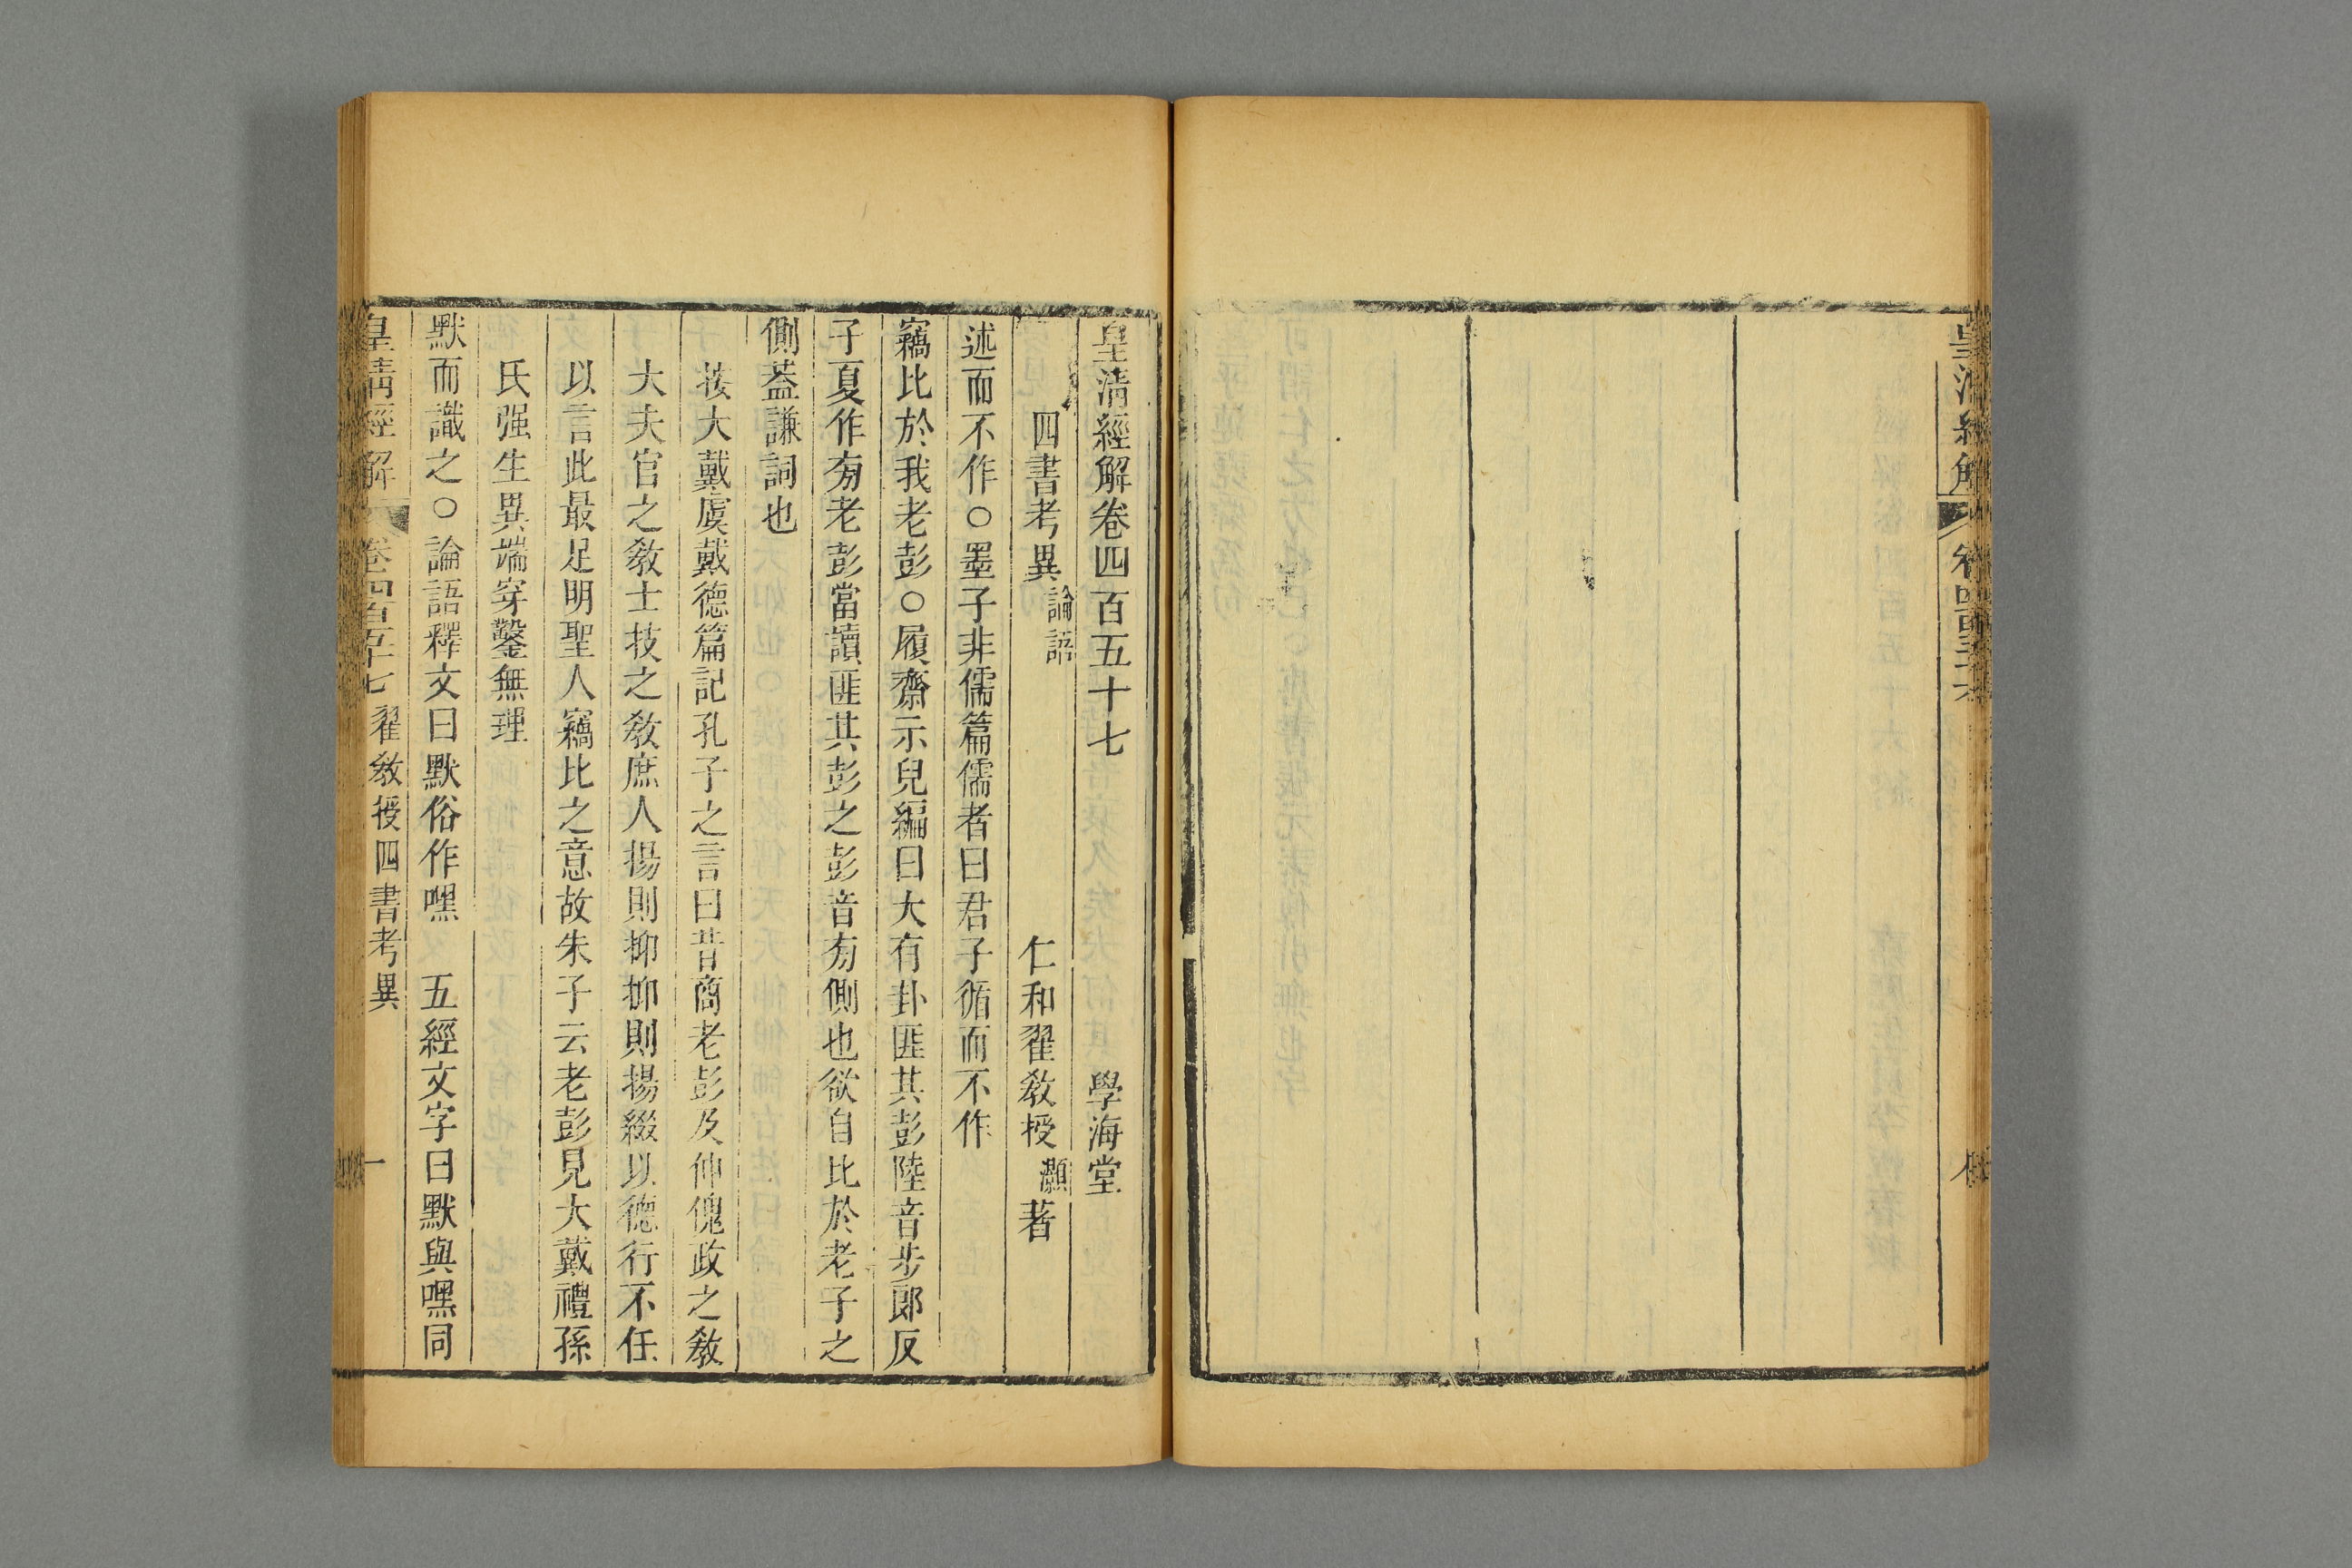 皇清經解卷四百五十七 學海堂
四書考異論語 仁和翟敎授灝著
述而不作○墨子非儒篇儒者曰君子循而不作
竊比於我老彭○履齋示兒編曰大有卦匪其彭陸音步郎反
子夏作旁老彭當讀匪其彭之彭音旁側也欲自比於老子之
側葢謙詞也
按大戴虞戴德篇記孔子之言曰昔商老彭及仲傀政之敎
大夫官之敎士技之敎庶人揚則抑抑則揚綴以德行不任
以言此最足明聖人竊比之意故朱子云老彭見大戴禮孫
氏强生異端穿鑿無理
默而識之○論語釋文曰默俗作嘿 五經文字曰默與嘿同
皇淸經解 卷四百五十七 翟敎授四書考異 一